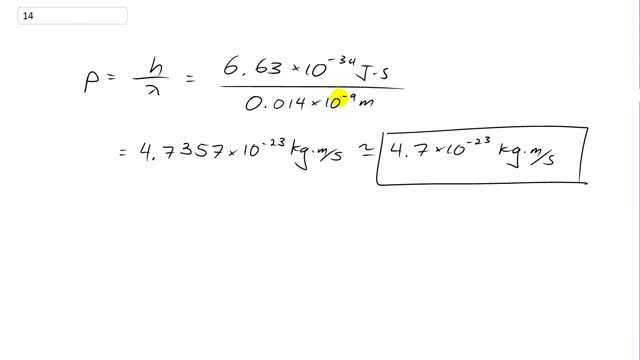 14
p = h/λ = 6.63 × 10⁻³⁴ J·s / 0.014 × 10⁻⁹ m
= 4.7357 × 10⁻²³ kg·m/s ≃ 4.7 × 10⁻²³ kg·m/s